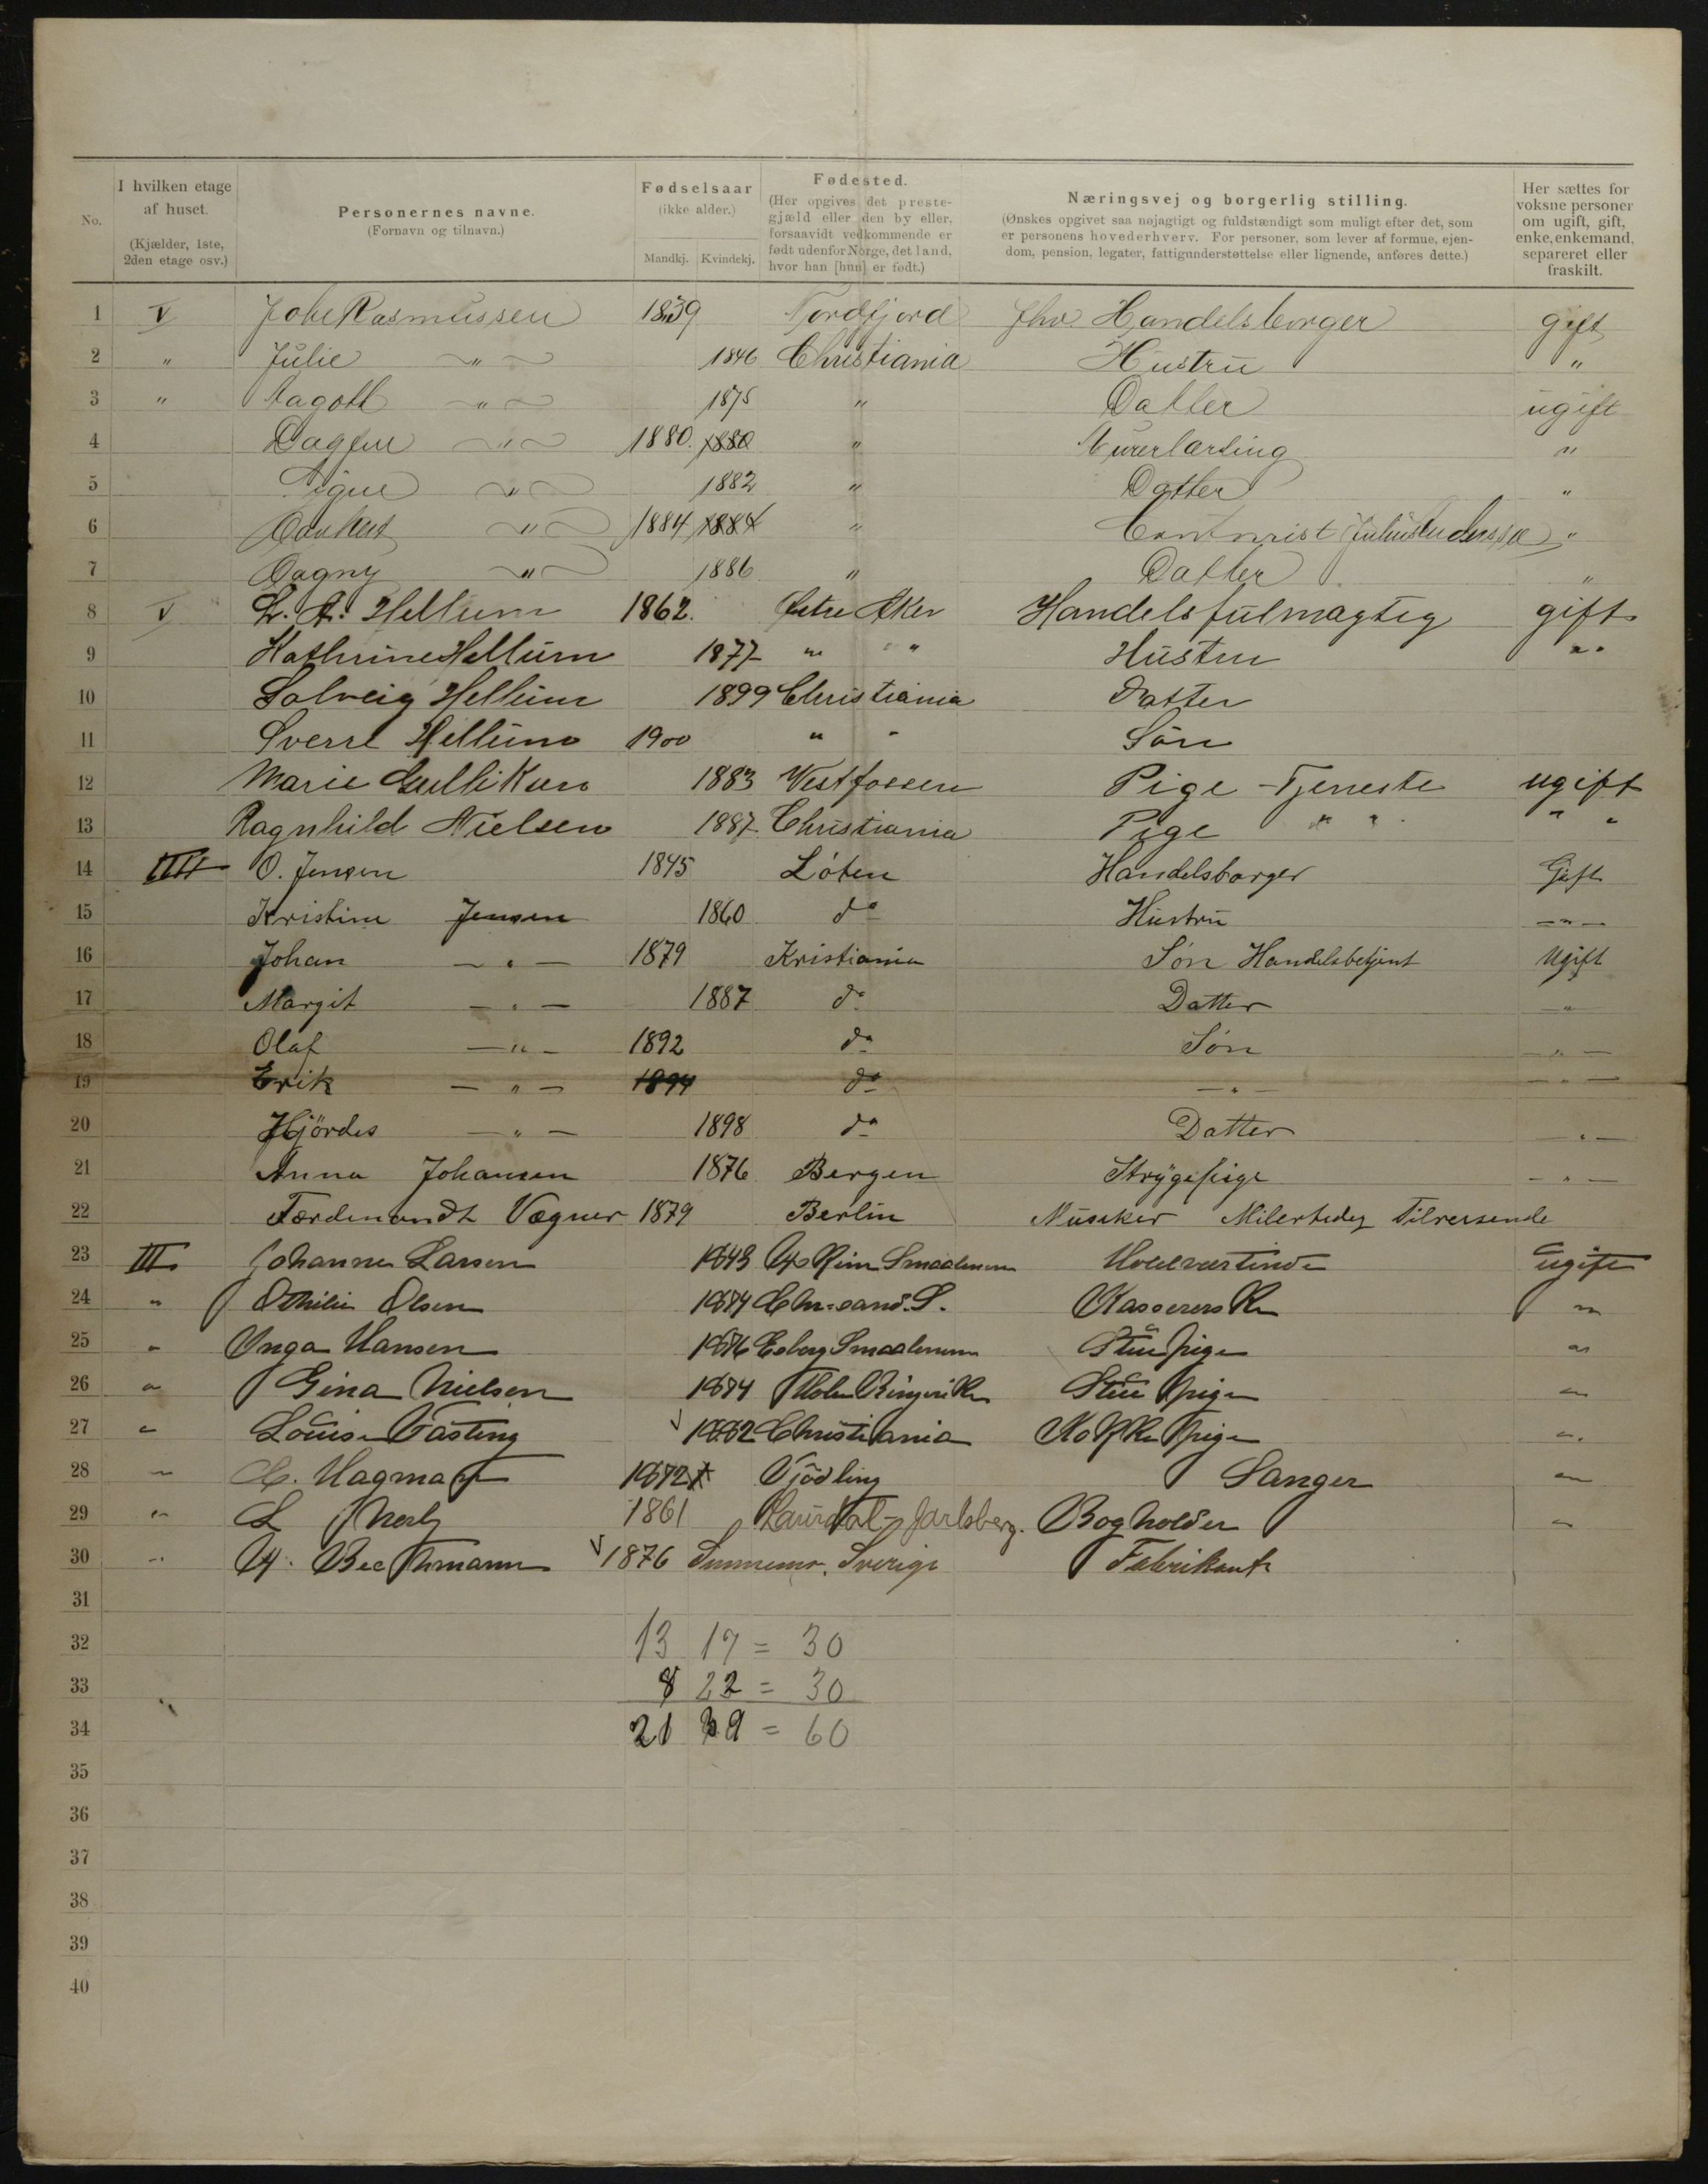 No.
I hvilken etage af huset.
(Kjælder, 1ste, 2den etage osv.)
Personernes navne.
(Fornavn og tilnavn.)
Fødselsaar
(ikke alder.)
Mandkj. Kvindekj.
Fødested.
(Her opgives det prestegjæld eller den by eller, forsaavidt vedkommende er født udenfor Norge, det land, hvor han [hun] er født.)
Næringsvej og borgerlig stilling.
(Ønskes opgivet saa nøjagtigt og fuldstændigt som muligt efter det, som er personens hovederhverv. For personer, som lever af formue, ejendom, pension, legater, fattigunderstøttelse eller lignende, anføres dette.)
Her sættes for voksne personer om ugift, gift, enke, enkemand, separeret eller fraskilt.
1 V Rasmussen 1839 Nordfjord fhv. Handelsborger gift
2 " Julie " 1846 Christiania Hustru "
3 " Aagott " 1875 " Datter ugift
4 Dagfin " 1880. 1880 " Murerlærling "
5 Signe " 1882 " Datter "
6 " 1884 1884 " Contorist "
7 Dagny " 1886 " Datter "
8 V L. A. Hellum 1862. Østre Aker Handelsfulmægtig gift
9 Kathrine Hellum 1877 " " Hustru "
10 Solveig Hellum 1899 Christiania Datter
11 Sverre Hellum 1900 " " Søn
12 Marie Gulliksen 1883 Vestfossen Pige - Tjeneste ugift
13 Ragnhild Nielsen 1887 Christiania Pige " " " "
14 IIII O. Jensen 1845 Löten Handelsborger Gift
15 Kristine Jensen 1860 do Hustru - " -
16 Johan - " - 1879 Kristiania Sön Handelsbetjent Ugift
17 Margit - " - 1887 do Datter - " -
18 Olaf - " - 1892 do Sön - " -
19 Erik - " - 1894 do - " - - " -
20 Hjördes - " - 1898 do Datter - " -
21 Anna Johansen 1876 Bergen Strygepige - " -
22 Færdenandt Vægner 1879 Berlin Musiker Tilreisende
23 III Johanne Larsen 1843 Smaalenene Hotelværtinde ugift
24 " Othilie Olsen 1874 Chr.sand. S. Kassererske "
25 " Inga Hansen 1876 Smaalenene Stuepige "
26 " Gina Nielsen 1874 Hole Ringerike Stue pige "
27 " Louise Fasting 1862 Christiania Kokkepige "
28 " Hagman 1872 Sanger "
29 " L 1861 Laurdal - Jarlsberg. Bogholder "
30 " 1876 Sverige Fabrikant
31
32 13 17 = 30
33 8 22 = 30
34 21 39 = 60
35
36
37
38
39
40